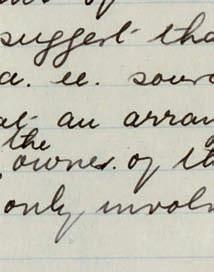 suggest tha
at an arran
the
owner of th
only involv